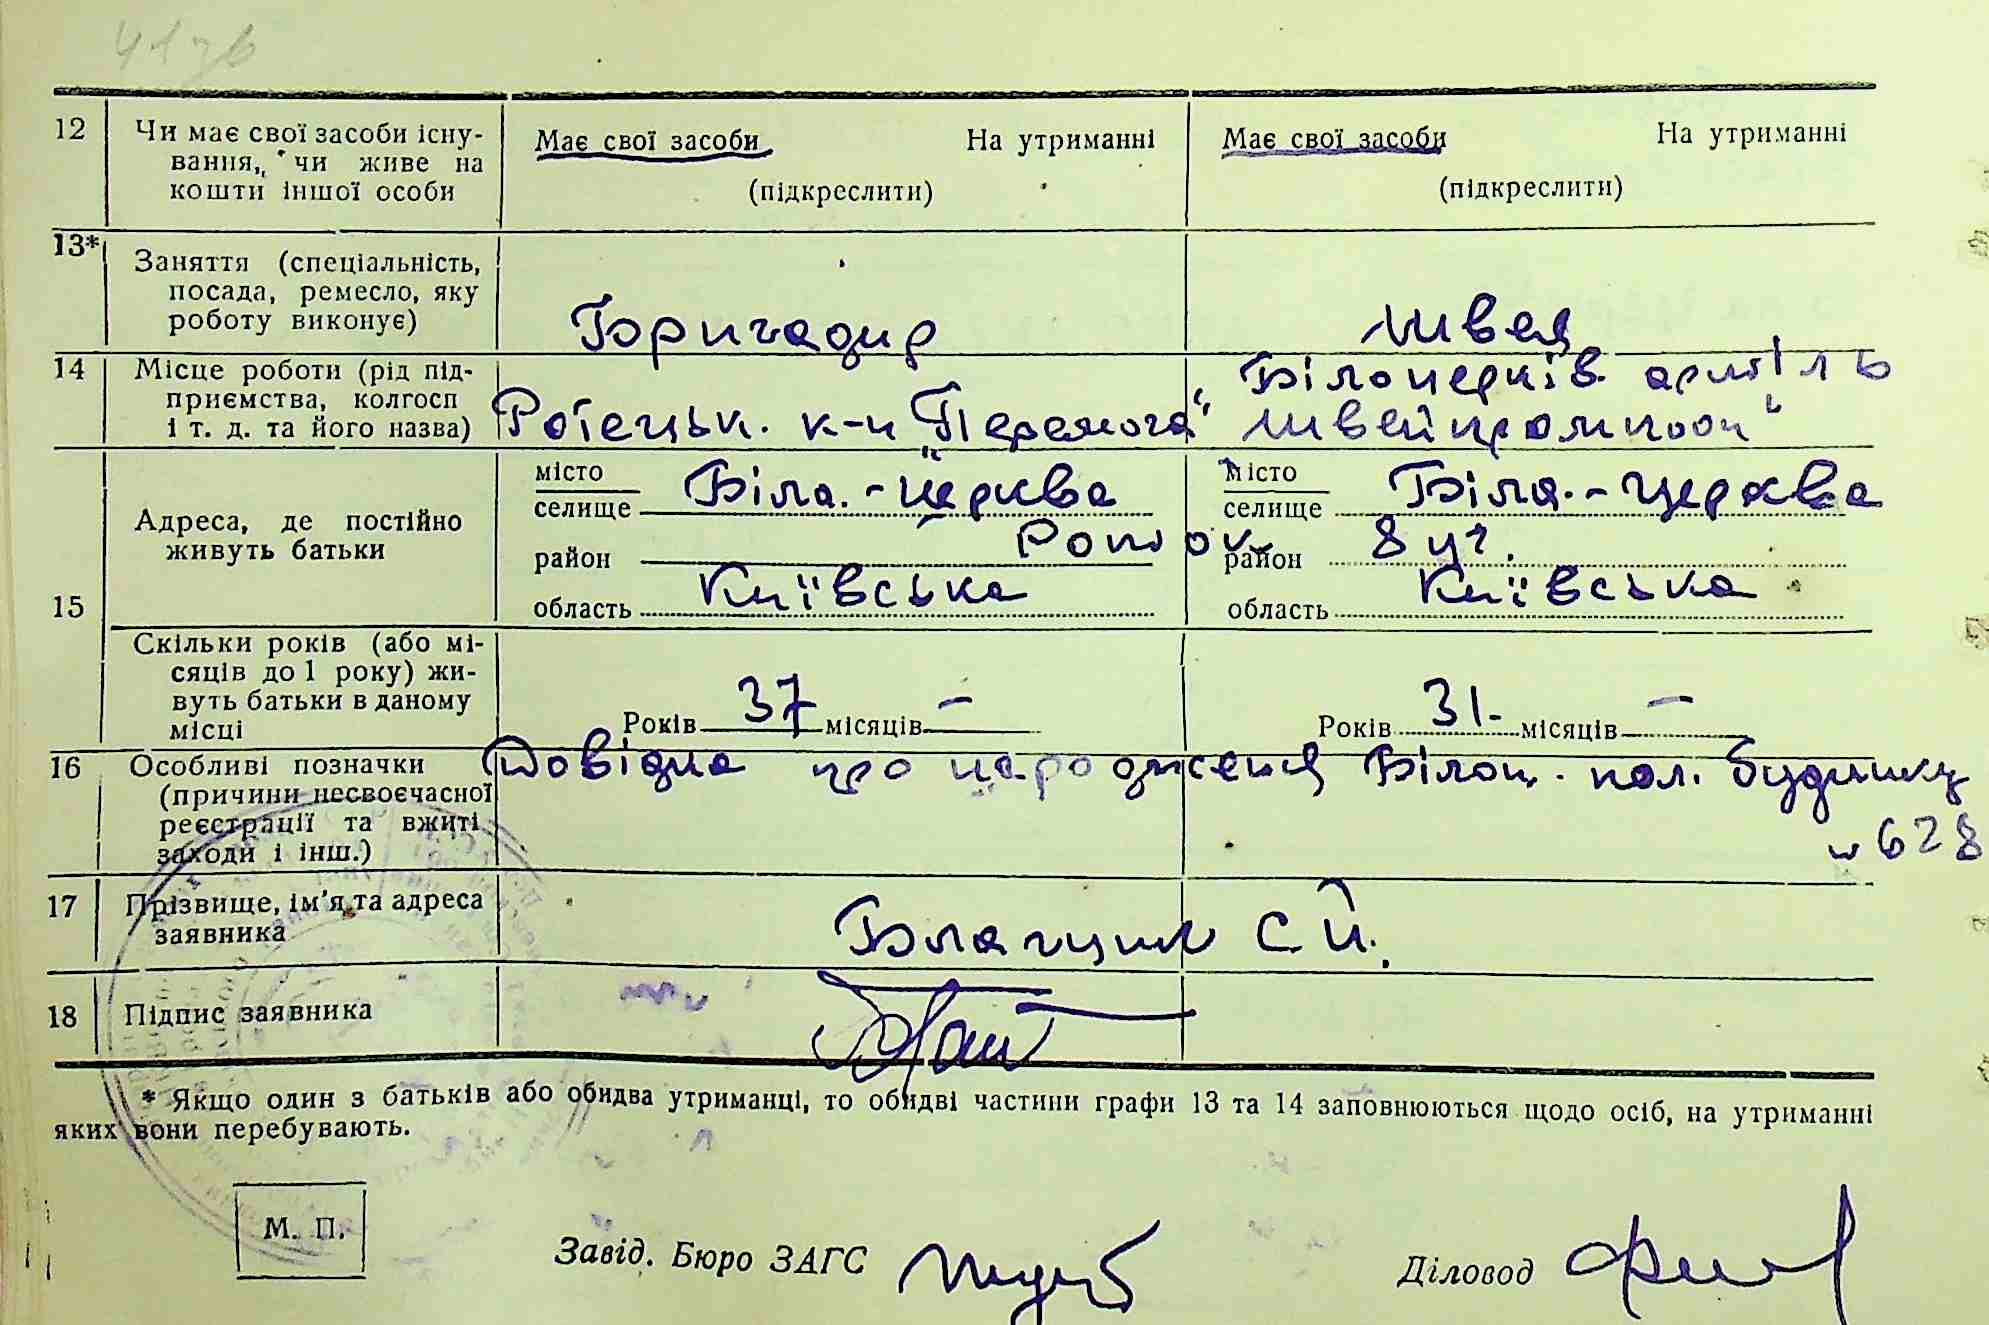 12 Чи має свої засоби існу-
вання, чи живе на
кошти іншої особи
Має свої засоби На утриманні
(підкреслити)
Має свої засоби На утриманні
(підкреслити)
13* Заняття (спеціальність,
посада, ремесло, яку
роботу виконує)
Бригадир
швея
14 Місце роботи (рід під-
приємства, колгосп
і т. д. та його назва)
к-п "Перемога"
Білоцерків. артіль
15 Адреса, де постійно
живуть батьки
місто
селище Біла.-Церква
район
область Київська
місто
селище Біла.-Церква
район 8
область Київська
Скільки років (або мі-
сяців до 1 року) жи-
вуть батьки в даному
місці
Років 37 місяців –
Років 31- місяців –
16 Особливі позначки
(причини несвоєчасної
реєстрації та вжиті
заходи і інш.)
Довідка про народження Білоц. пол. будинку
628
17 Прізвище, ім'я та адреса
заявника
С Й.
18 Підпис заявника
* Якщо один з батьків або обидва утриманці, то обидві частини графи 13 та 14 заповнюються щодо осіб, на утриманні
яких вони перебувають.
М. П.
Завід. Бюро ЗАГС
Діловод